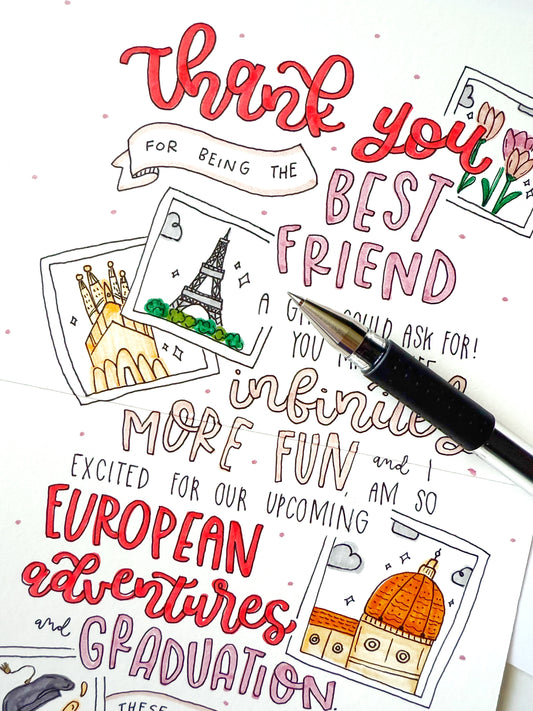 Thank you
FOR BEING THE
BEST
FRIEND
A COULD ASK FOR!
YOU
infinitely
MORE FUN and I
AM SO
EXCITED FOR OUR UPCOMING
EUROPEAN
adventures
and GRADUATION.
THESE